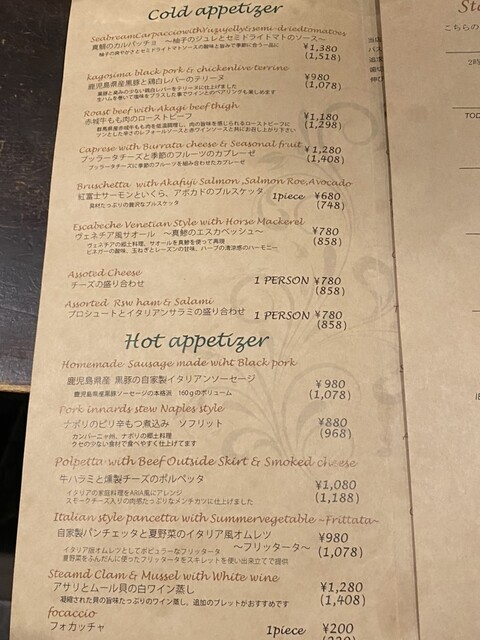 Cold appetizer
SeabreamCarpacciowithYuzujelly&semi-driedtomatoes
真鯛のカルパッチョ ～柚子のジュレとセミドライトマトのソース～
柚子の爽やかさとセミドライトマトの酸味と旨みで季節に合う一品に
¥1,380
(1,518)
kagosima black pork & chickenlive terrine
鹿児島県産黒豚と鶏白レバーのテリーヌ
¥980
(1,078)
Roast beef with Akagi beef thigh
赤城牛もも肉のローストビーフ
¥1,180
(1,298)
Caprese with Burrata cheese & Seasonal fruit
ブッラータチーズと季節のフルーツのカプレーゼ
ブッラータチーズに季節のフルーツを組み合わせたカプレーゼ
¥1,280
(1,408)
Bruschetta with Akafuji Salmon ,Salmon Roe,Avocado
紅富士サーモンといくら、アボカドのブルスケッタ
具材たっぷりの贅沢なブルスケッタ
1piece ¥680
(748)
Escabeche Venetian Style with Horse Mackerel
ヴェネチア風サオール ～真鯵のエスカベッシュ～
ヴェネチアの郷土料理、サオールを真鯵を使って再現
ビネガーの酸味、玉ねぎとレーズンの甘味、ハーブの清涼感のハーモニー
¥780
(858)
Assoted Cheese
チーズの盛り合わせ
1 PERSON ¥780
(858)
Assorted Rsw ham & Salami
プロシュートとイタリアンサラミの盛り合わせ
1 PERSON ¥780
(858)
Hot appetizer
Homemade Sausage made wiht Black pork
鹿児島県産 黒豚の自家製イタリアンソーセージ
鹿児島県産黒豚ソーセージの本格派 160gのボリューム
¥980
(1,078)
Pork innards stew Naples style
ナポリのピリ辛もつ煮込み ソフリット
カンパーニャ州、ナポリの郷土料理
クセの少ない食材で食べやすく仕上げてます
¥880
(968)
Polpetta with Beef Outside Skirt & Smoked cheese
牛ハラミと燻製チーズのポルペッタ
イタリアの家庭料理をARIA風にアレンジ
スモークチーズ入りの肉感たっぷりなメンチカツに仕上げました
¥1,080
(1,188)
Italian style pancetta with Summervegetable ~Frittata~
自家製パンチェッタと夏野菜のイタリア風オムレツ
～フリッタータ～
イタリア版オムレツとしてポピュラーなフリッタータ
夏野菜をふんだんに使ったフリッタータをスキレットを使い出来立てで提供
¥980
(1,078)
Steamd Clam & Mussel with White wine
アサリとムール貝の白ワイン蒸し
凝縮された貝の旨味たっぷりのワイン蒸し、追加のブレットがおすすめです
¥1,280
(1,408)
focaccio
フォカッチャ
1piece ¥200